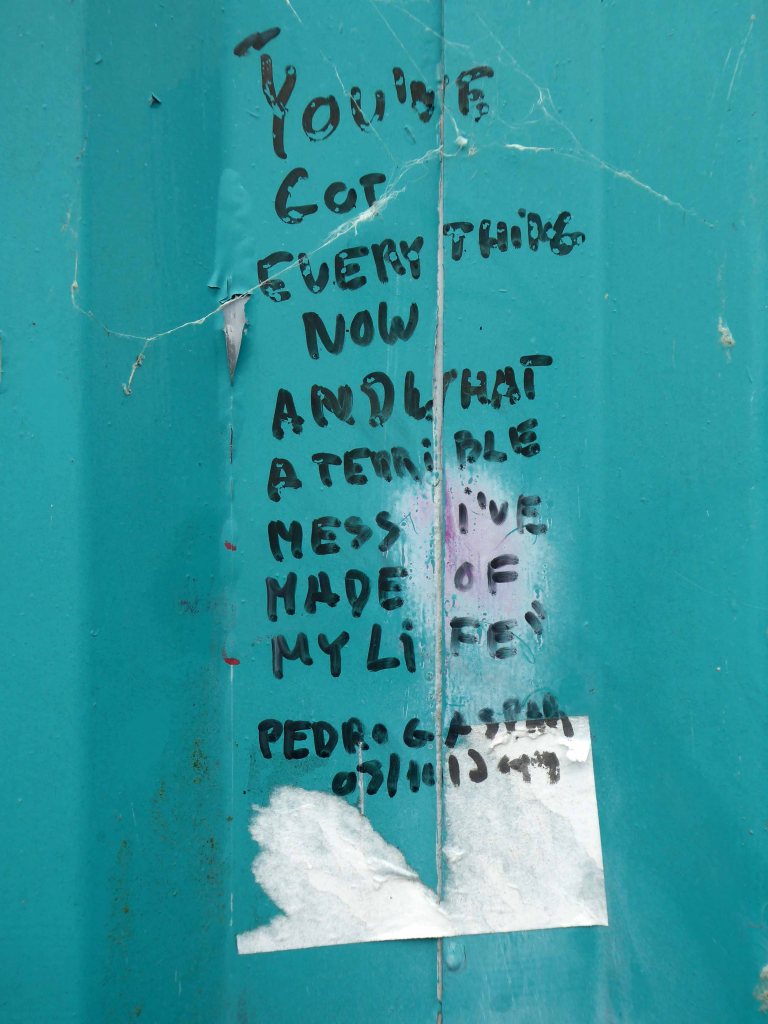 "YOU'VE
GOT
EVERYTHING
NOW
AND WHAT
A TERRIBLE
MESS I'VE
MADE OF
MY LIFE"
PEDRO GASPAR